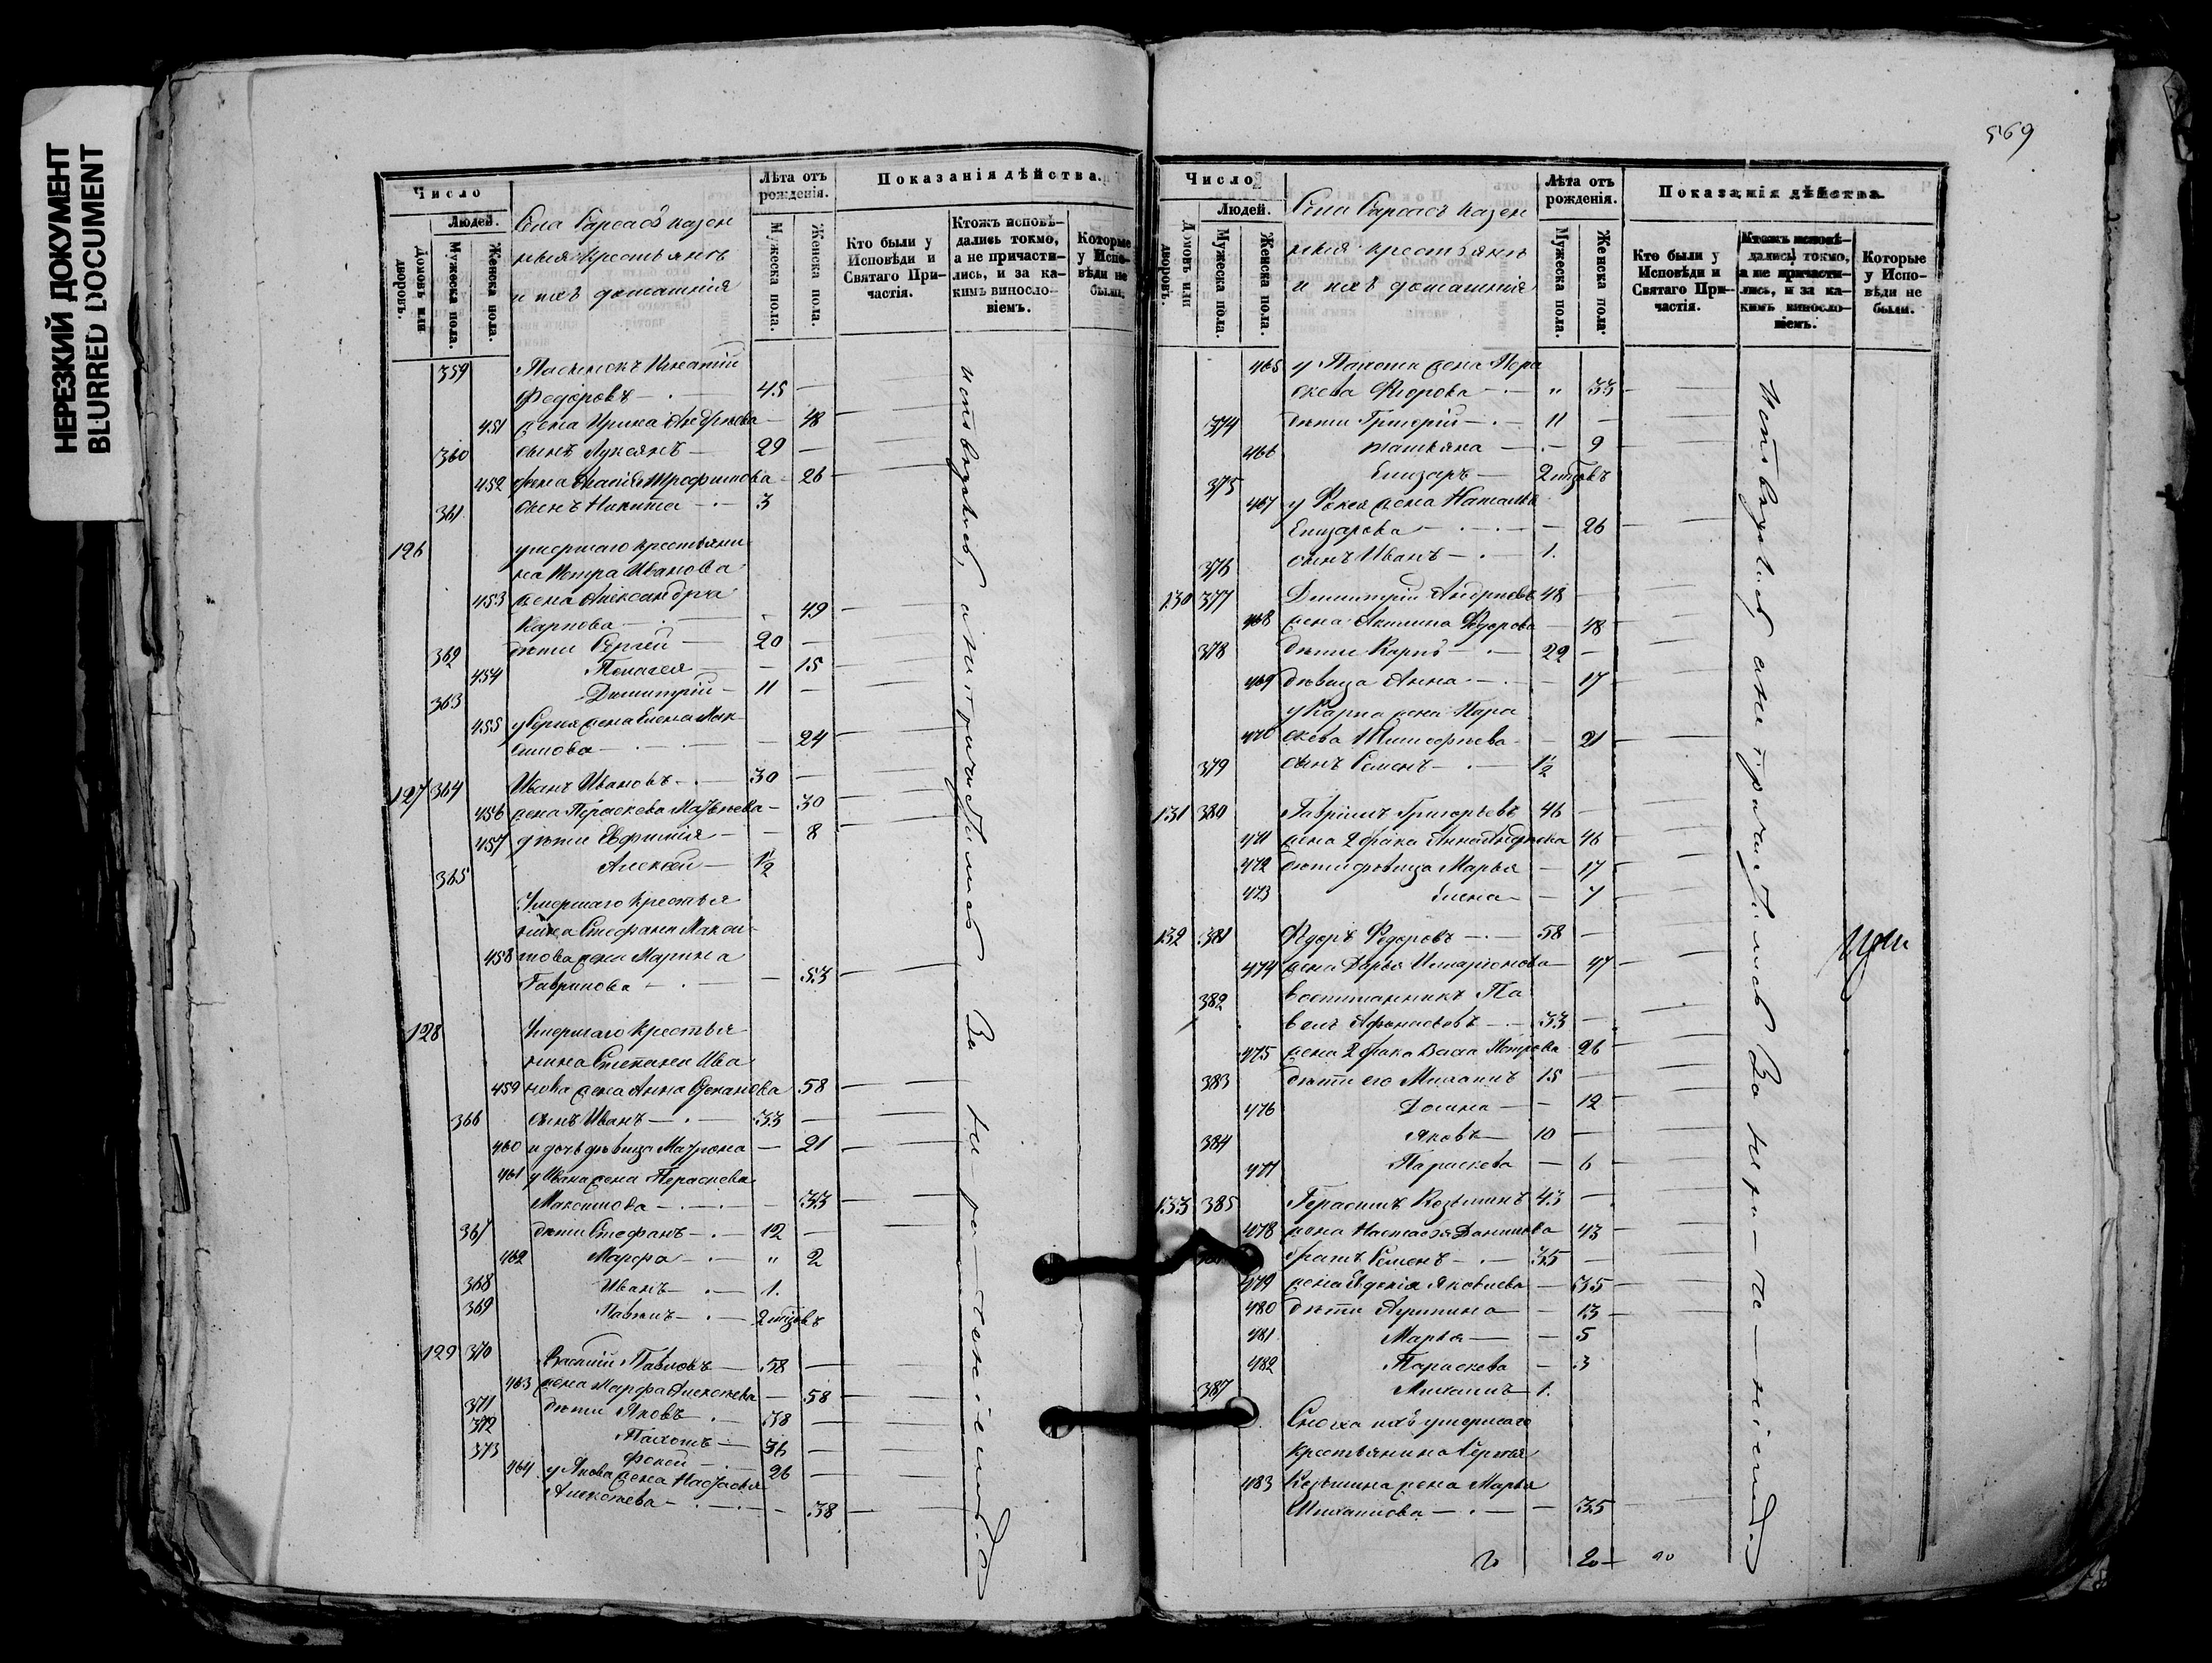 НЕРЕЗКИЙ ДОКУМЕНТ
BLURRED DOCUMENT
Число
Людей.
Домовъ или дворовъ.
Мужеска пола.
Женска пола.
Села казен
ныя крестьяне
и ихъ домашнія
Лѣта отъ рожденія.
Мужеска пола.
Женска пола.
Показанія дѣйства.
Кто были у Исповѣди и Святаго Причастія.
Ктожъ исповѣдались токмо, а не причастились, и за какимъ винословіемъ.
Которые у Исповѣди не были.
359 Пасынокъ Игнатій
Федоровъ 45
451 жена Ирина Андреева 48
360 сынъ Лукьянъ 29
452 жена Трофимова 26
361 сынъ Никита 3
126 умершаго крестьяни
на Петра Иванова
453 жена Александра
Карпова 49
362 дѣти Сергей 20
454 Пелагея 15
363 Димитрій 11
455 у Сергія жена Елена Мак
симова 24
127 364 Иванъ Ивановъ 30
456 жена Параскева Матвѣева 30
457 дѣти Евфимія 8
365 Алексей 1/2
Умершаго крестья
нина Стефана Макси
458 мова жена Марина
Гаврилова 53
128 Умершаго крестья
нина Степана Ива
459 нова жена Анна Степанова 58
366 сынъ Иванъ 33
460 и дочь дѣвица Матрона 21
461 у Ивана жена Параскева
Максимова 33
367 дѣти Стефанъ 12
462 Марфа " 2
368 Иванъ 1.
369 Павелъ 2 мѣсяцовъ
129 370 Василій Павловъ 58
463 жена Марфа Алексеева 58
371 дѣти Яковъ 38
372 Пахомъ 36
373 Фокей 26
464 у Якова жена Настасья
Алексеева 38
исповедались, а не причастились за нерачительностію.
569
Число
Людей.
Домовъ или дворовъ.
Мужеска пола.
Женска пола.
Села казен
ныя крестьяне
и ихъ домашнія
Лѣта отъ рожденія.
Мужеска пола.
Женска пола.
Показанія дѣйства.
Кто были у Исповѣди и Святаго Причастія.
Ктожъ исповѣдались токмо, а не причастились, и за какимъ винословіемъ.
Которые у Исповѣди не были.
465 у Пахома жена Пара
скева Федорова " 33
374 дѣти Григорій 11
466 Татьяна 9
375 Елизаръ 2 мѣсяцовъ
467 у Фокея жена Наталья
Елизарова 26
376 сынъ Иванъ 1.
130 377 Димитрій Андреевъ 48
468 жена Акилина Федорова 48
378 дѣти Карпъ 22
469 дѣвица Анна 17
у Карпа жена Пара
470 скева Тимофеева 21
379 сынъ Семенъ 1/2
131 380 Гавріилъ Григорьевъ 46
471 жена 2 брака Анна Андреева 46
472 дѣти дѣвица Марья 17
473 Елена 7
132 381 Федоръ Федоровъ 58
474 жена Дарья Иларіонова 47
382 воспитанникъ Па
велъ Афанасьевъ 33
475 жена 2 брака Васса Петрова 26
383 дѣти его Михаилъ 15
476 Домна 12
384 Яковъ 10
477 Параскева 6
133 385 Герасимъ Козьминъ 43
478 жена Настасья Данилова 43
братъ Семенъ 35
479 жена Евдокія Яковлева 35
480 дѣти Акулина 13
481 Марья 5
482 Параскева 3
387 Михаилъ 1.
Сноха ихъ умершаго
крестьянина Сергея
483 Козьмина жена Марья
Михаилова 35
20
исповедались, а не причастились за нерачительностію.